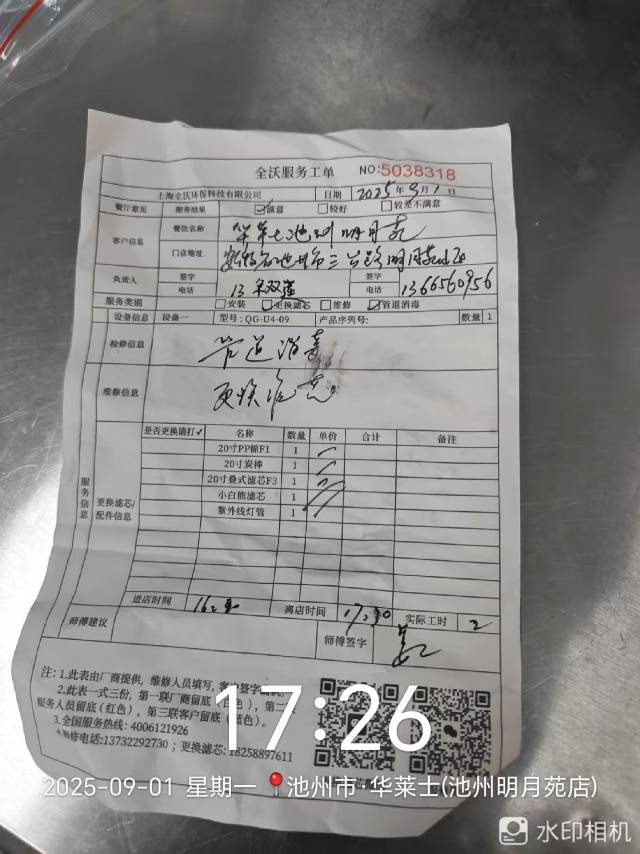 全沃服务工单 NO:5038318
上海全沃环保科技有限公司 日期 2025年9月1日
餐厅意见 服务结果 满意 较好 较差不满意
客户信息 餐饮名称 华莱士池州明月苑
门店地址 安徽省池州市三台路明月苑小区
负责人 签字 签字
电话 13 电话 1366560956
服务类别 安装 更换滤芯 维修 管道消毒
设备信息 设备一 型号:QG-U4-09 产品序列号: 数量 1
检修信息 管道消毒
维修信息 更换滤芯
服务信息 更换滤芯/配件信息
是否更换请打✓ 名称 数量 单价 合计 备注
20寸PP棉F1 1
20寸炭棒 1
20寸叠式滤芯F3 1
小白熊滤芯 1
紫外线灯管 1
进店时间 16:30 离店时间 17:30 实际工时 2
师傅建议 师傅签字
注:1.此表由厂商提供,维修人员填写,客户签字
2.此表一式三份,第一联厂商留底(白色),第二
服务人员留底(红色),第三联客户留底(蓝色)。
3.全国服务热线:4006121926
4.维修电话:13732292730;更换滤芯:18258897611
17:26
2025-09-01 星期一 池州市·华莱士(池州明月苑店)
水印相机